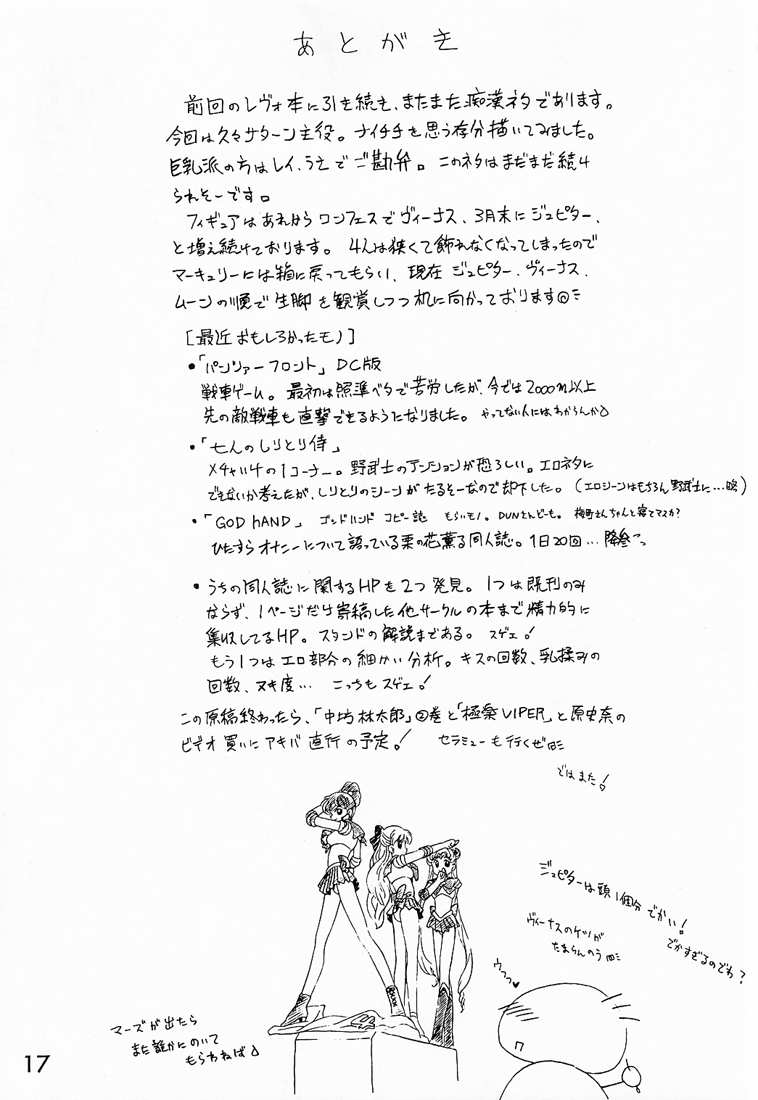 あとがき
前回のレヴォ本に引き続き、またまた痴漢ネタであります。
今回は久々サターン主役。ナイチチを思う存分描いてみました。
巨乳派の方はレイ、うえでご勘弁。このネタはまだまだ続け
られそーです。
フィギュアはあれからワンフェスでヴィーナス、3月末にジュピター、
と増え続けております。4人は狭くて飾れなくなってしまったので
マーキュリーには箱に戻ってもらい、現在ジュピター、ヴィーナス、
ムーンの順で生脚を観賞しつつ机に向かっております
[最近おもしろかったモノ]
•「パンツァーフロント」DC版
戦車ゲーム。最初は照準ベタで苦労したが、今では2000m以上
先の敵戦車も直撃できるようになりました。やってない人にはわからんか
•「七人のしりとり侍」
メチャイケの1コーナー。野武士のテンションが恐ろしい。エロネタに
できないか考えたが、しりとりのシーンがたるそーなので却下した。(エロシーンはもちろん野武士に…略)
•「GOD HAND」 ゴッドハンド コピー誌 もらいモノ。DUNさんどーも。 ちゃんと寝てマスか?
ひたすらオナニーについて語っている栗の花薫る同人誌。1日20回…降参
•うちの同人誌に関するHPを2つ発見。1つは既刊のみ
ならず、1ページだけ寄稿した他サークルの本まで精力的に
集収してるHP。スタンドの解説まである。スゲェ!
もう1つはエロ部分の細かい分析。キスの回数、乳揉みの
回数、ヌキ度… こっちもスゲェ!
この原稿終わったら、「中坊林太郎」②巻と「極楽VIPER」と原史奈の
ビデオ買いにアキバ直行の予定!セラミューも行くぜ
ではまた!
ジュピターは頭1個分でかい!
でかすぎるのでわ?
ヴィーナスのケツが
たまらんのう
ウフフ♥
マーズが出たら
また誰かにのいて
もらわねば
17